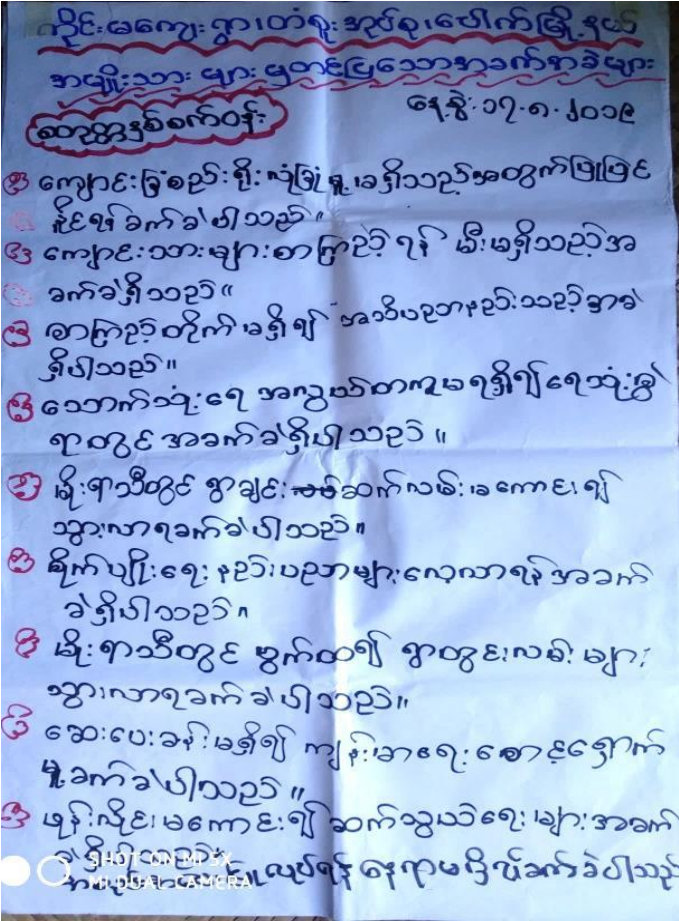 ကိုင်းမကျေးရွာ၊တံရူးအုပ်စု၊ပေါက်မြို့နယ်
အမျိုးသား များ မှတင်ပြသောအခက်အခဲများ
နေ့စွဲ-၁၇-၈-၂၀၁၉
ကျောင်းခြံစည်းရိုးလုံခြုံမှု့မရှိသည့်အတွက်ပြုပြင်
နိုင်ရန်ခက်ခဲပါသည်။
ကျောင်းသားများစာကြည့်ရန် မီးမရှိသည့်အ
ခက်ခဲရှိသည်။
စာကြည့်တိုက်မရှိ၍ အသိပညာနည်းသည့်အခဲ
ရှိပါသည်။
သောက်သုံးရေ အလွယ်တကူမရရှိ၍ရေသုံးစွဲ
ရာတွင်အခက်ခဲရှိပါသည်။
မိုးရာသီတွင် ရွာချင်းဆက်လမ်းမကောင်း၍
သွားလာရခက်ခဲပါသည်။
စိုက်ပျိုးရေးနည်းပညာများလေ့လာရန်အခက်
ခဲရှိပါသည်။
မိုးရာသီတွင် ဗွက်ထ၍ ရွာတွင်းလမ်းများ
သွားလာရခက်ခဲပါသည်။
ဆေးပေးခန်းမရှိ၍ ကျန်းမာရေးစောင့်ရှောက်
မှု့ခက်ခဲပါသည်။
ဖုန်းလိုင်းမကောင်း၍ ဆက်သွယ်ရေးများအခက်
ခဲရှိပါသည်။
လုပ်ရန်နေရာမရှိ၍ခက်ခဲပါသည်
SHOT ON MI 5X
MI DUAL CAMERA